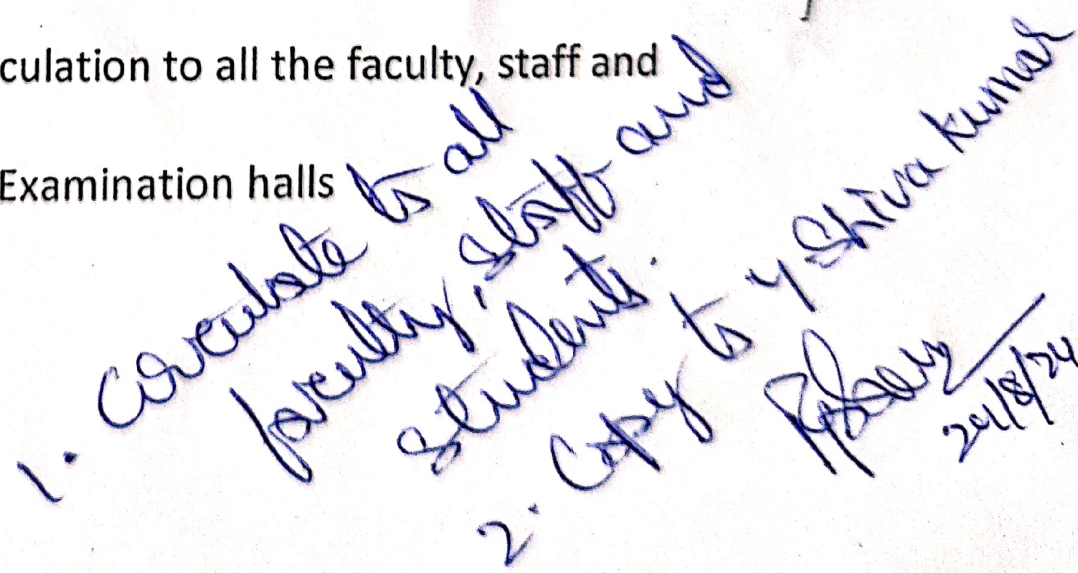 culation to all the faculty, staff and
Examination halls
1. Circulate to all
faculty, staff and
students.
2. Copy to y Shiva Kumar